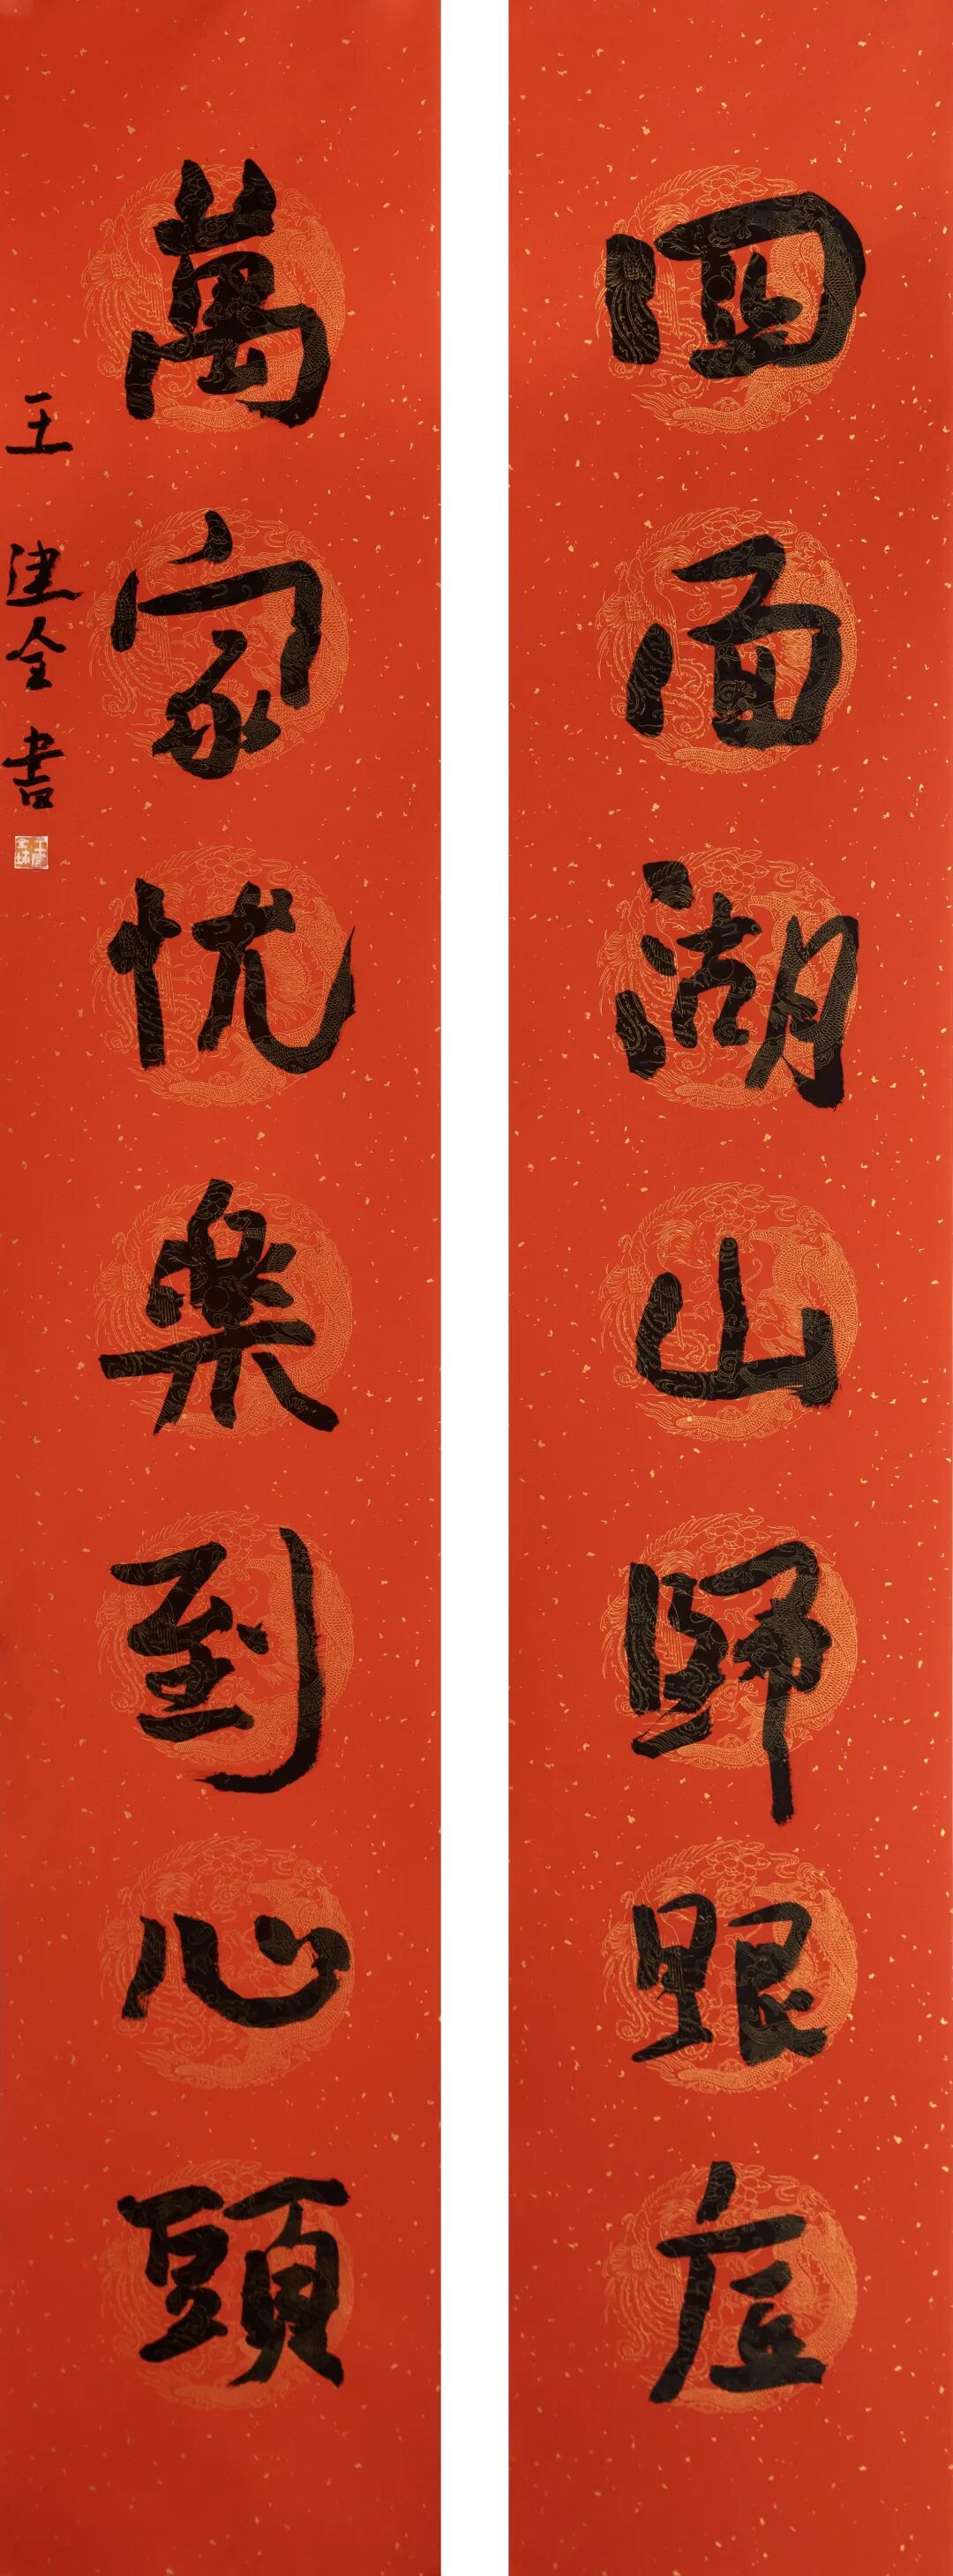 四面湖山歸眼底
萬家忧楽到心頭
王建全書